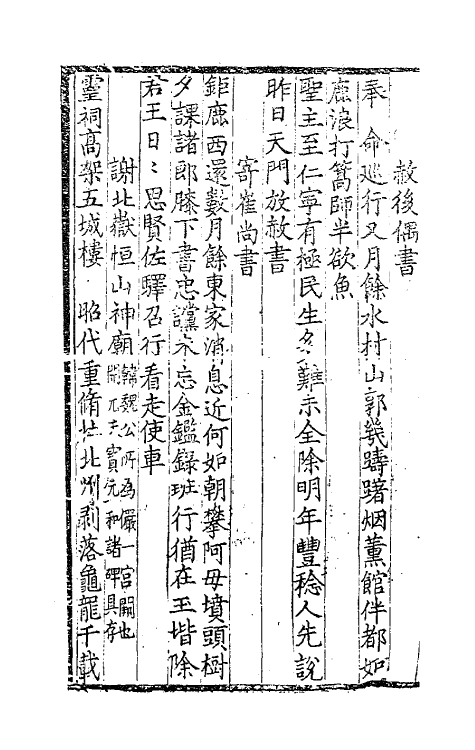 赦後偶書
奉　命巡行又月餘水村山郭幾躊躇烟薰館伴都如
鹿浪打篙師半欲魚
聖主至仁寧有極民生多難未全除明年豐稔人先說
昨日天門放赦書
寄崔尚書
鉅鹿西還數月餘東家消息近何如朝攀阿母墳頭樹
夕課諸郎膝下書忠讜未忘金鑑錄班行猶在玉堦除
若王日〻思賢佐驛召行看走使車
謝北嶽恒山神廟韓魏公所爲儼一宮闕也開元大寶元和諸碑具存
靈祠高架五城樓　昭代重脩壯北州剥落龜龍千載